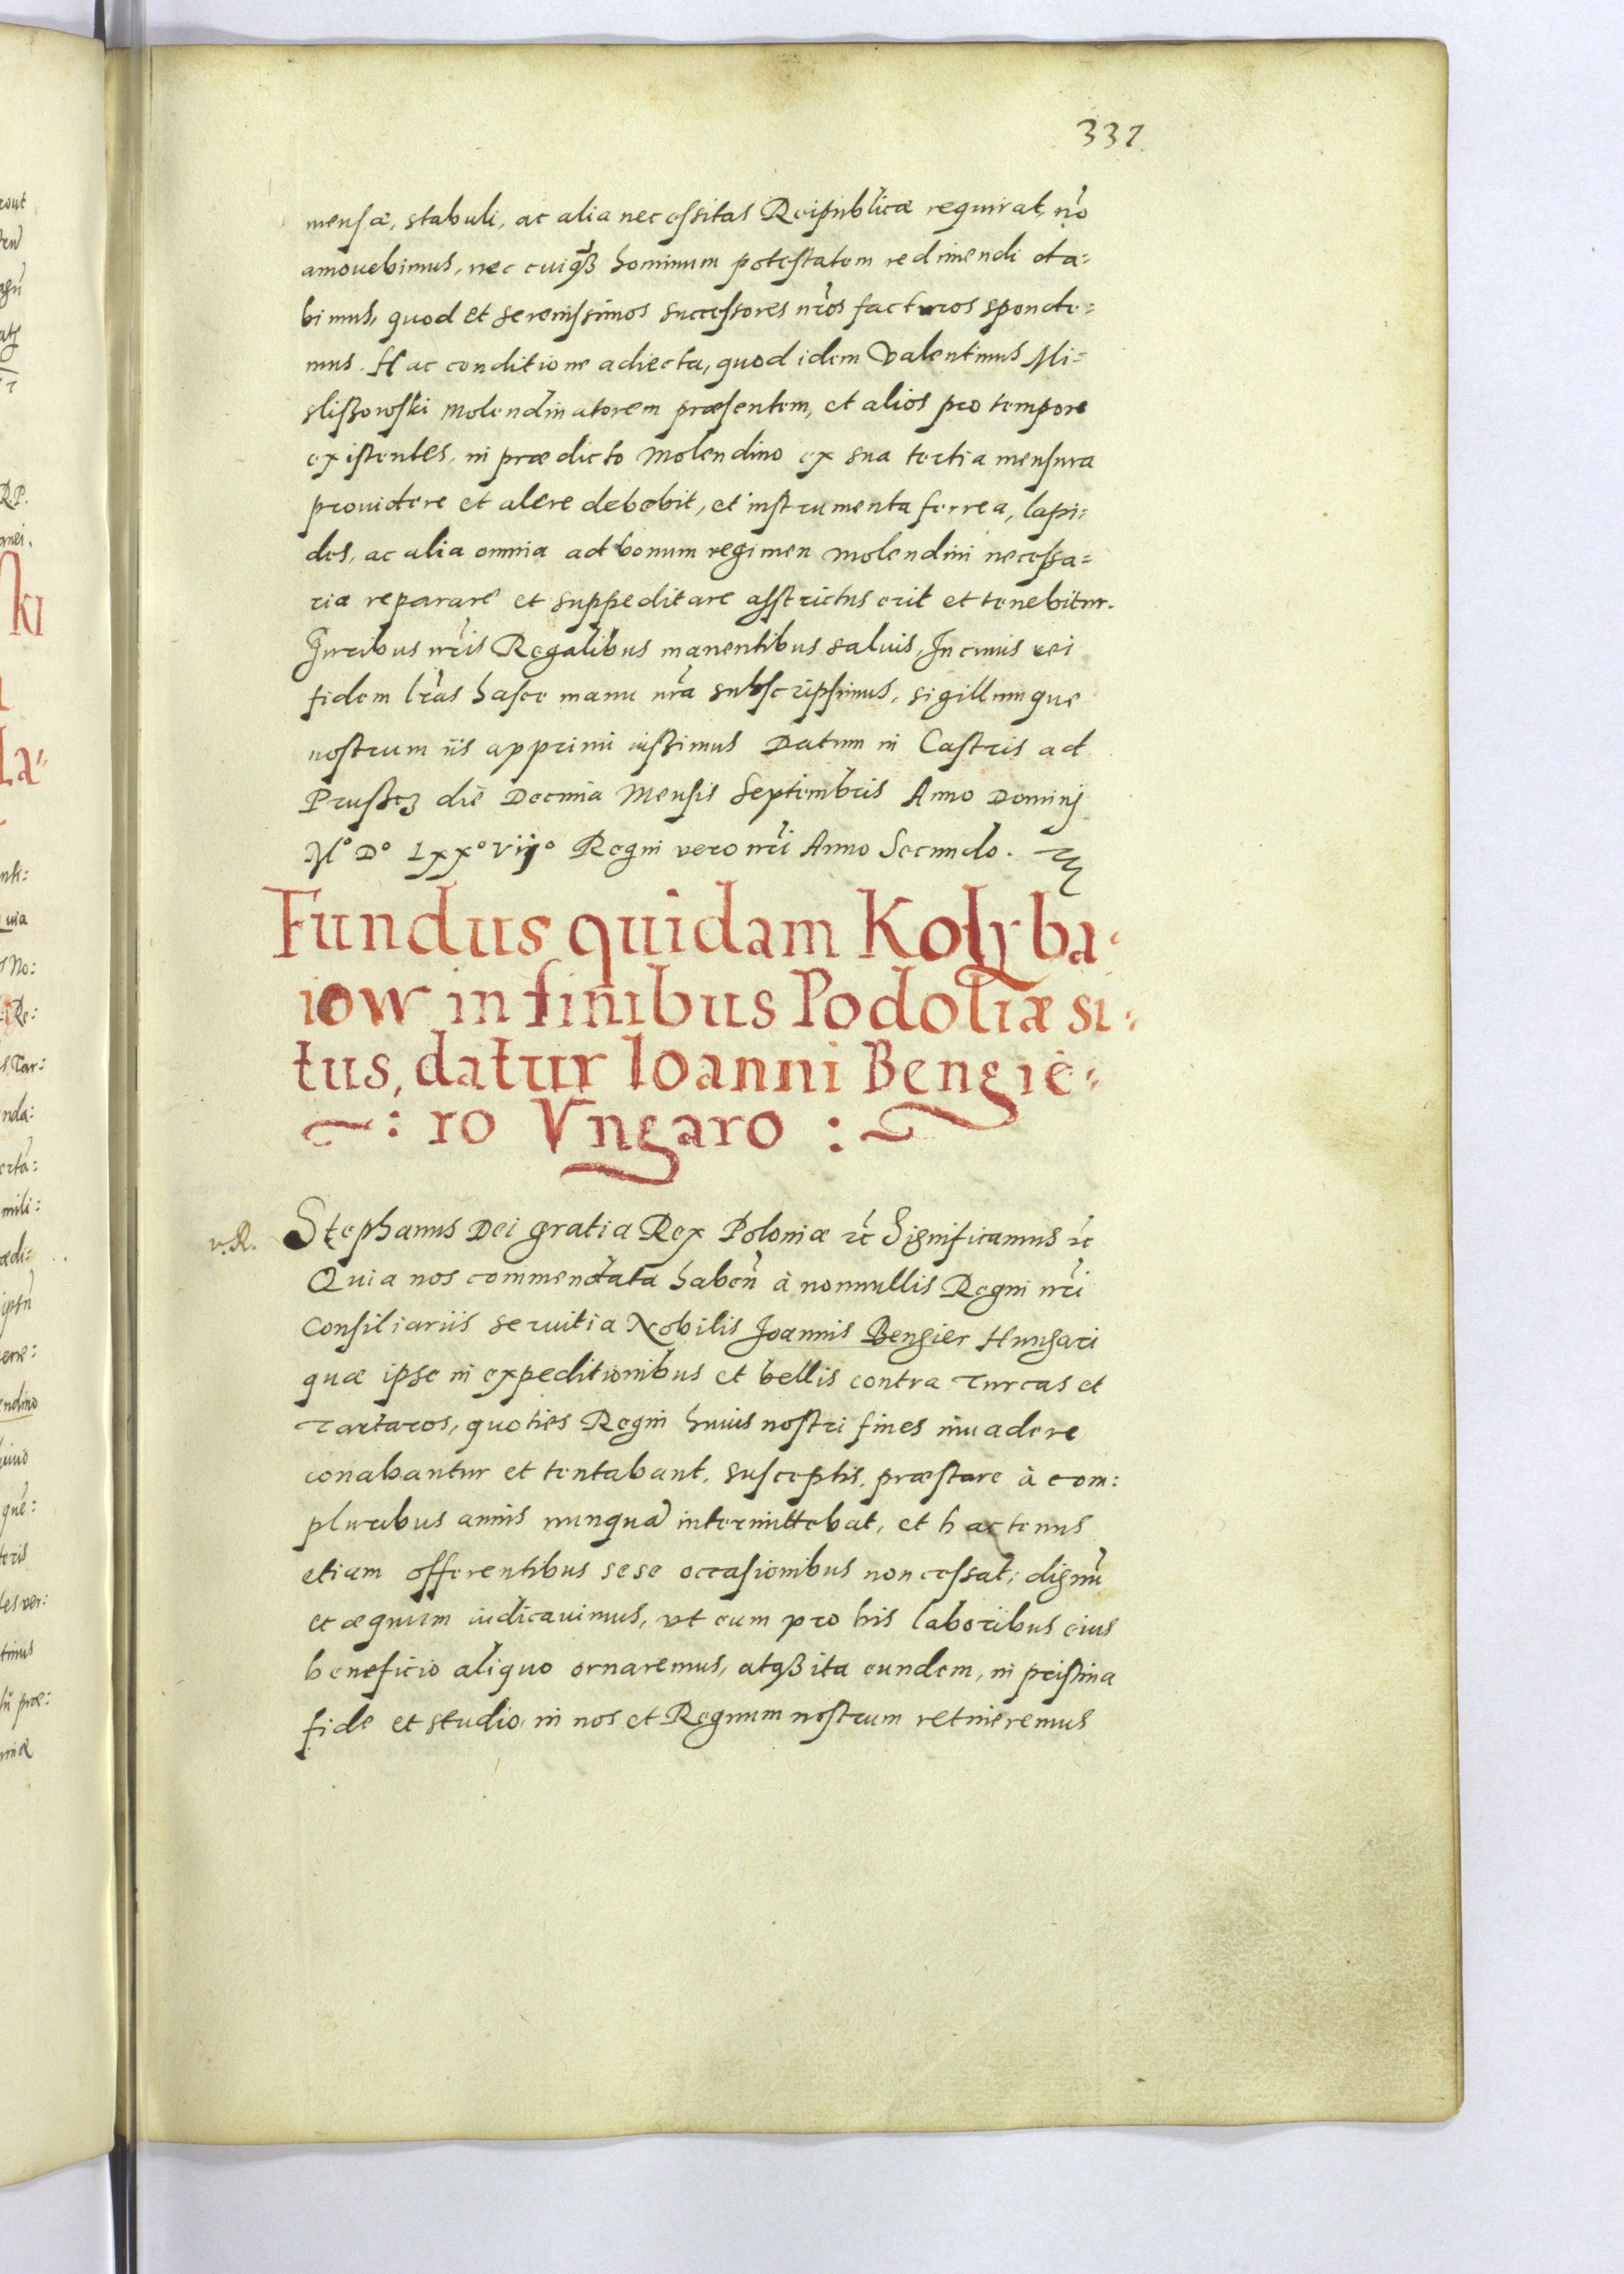 331
mensæ, stabuli, ac alia necessitas Reipublicæ requirat, nõ
amouebimus, nec cuiqȝ hominum potestatem redimendi da=
bimus, quod et serenissimos successores nr̃os facturos sponde=
mus. Hac conditione adiecta, quod idem Valentinus Mi=
slißowski molendinatorem præsentem, et alios pro tempore
existentes, in prædicto molendino ex sua tertia mensura
prouidere et alere debebit, et instrumenta ferrea, lapi=
des, ac alia omnia ad bonum regimen molendini necessa=
ria reparare et suppeditare asstrictus erit et tenebitur.
Juribus nr̃is Regalibus manentibus saluis, In cuius rei
fidem lr̃as hasce manu nr̃a subscripsimus, sigillumque
nostrum iis apprimi iussimus Datum in Castris ad
Prußcz die Decima Mensis Septembris Anno Dominj
Mº Dº Lxxº vijº Regni vero nr̃i Anno Secundo.
Fundus quidam Kolyba=
iow in finibus Podoliæ si=
tus, datur Ioanni Bengie=
: ro Vngaro :
v.R.
Stephanus Dei gratia Rex Poloniæ rc̃ Significamus rc̃
Quia nos commendata habeñ à nonnullis Regni nr̃i
Consiliariis seruitia Nobilis Joannis Bengier Hungari
quæ ipse in expeditionibus et bellis contra Turcas et
Tartaros, quoties Regni huius nostri fines inuadere
conabantur et tentabant, susceptis, præstare à com:
pluribus annis nunquã intermittebat, et hactenus
etiam offerentibus sese occasionibus non cessat; dignũ
et æquum iudicauimus, vt eum pro his laboribus eius
beneficio aliquo ornaremus, atqȝ ita eundem, in pristina
fide et studio, in nos et Regnum nostrum retineremus